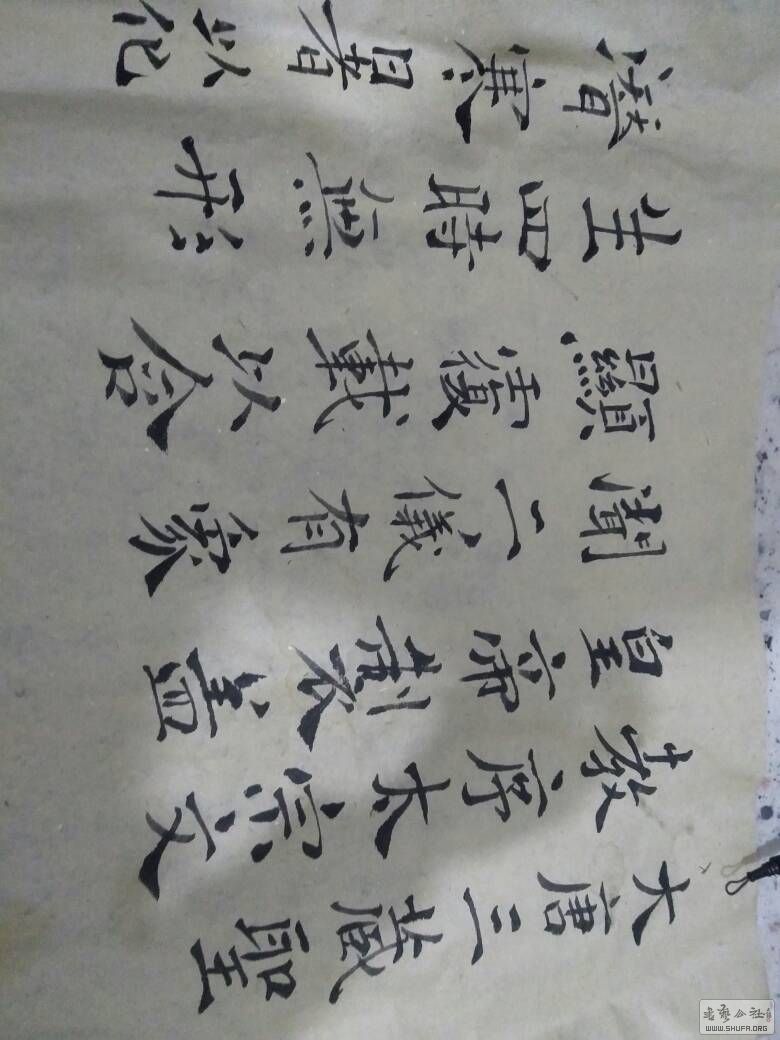 大唐三藏聖
教序太宗文
皇帝製蓋
聞二儀有象
顯覆載以含
生四時無形
潜寒暑以化
書藝公社
WWW.SHUFA.ORG